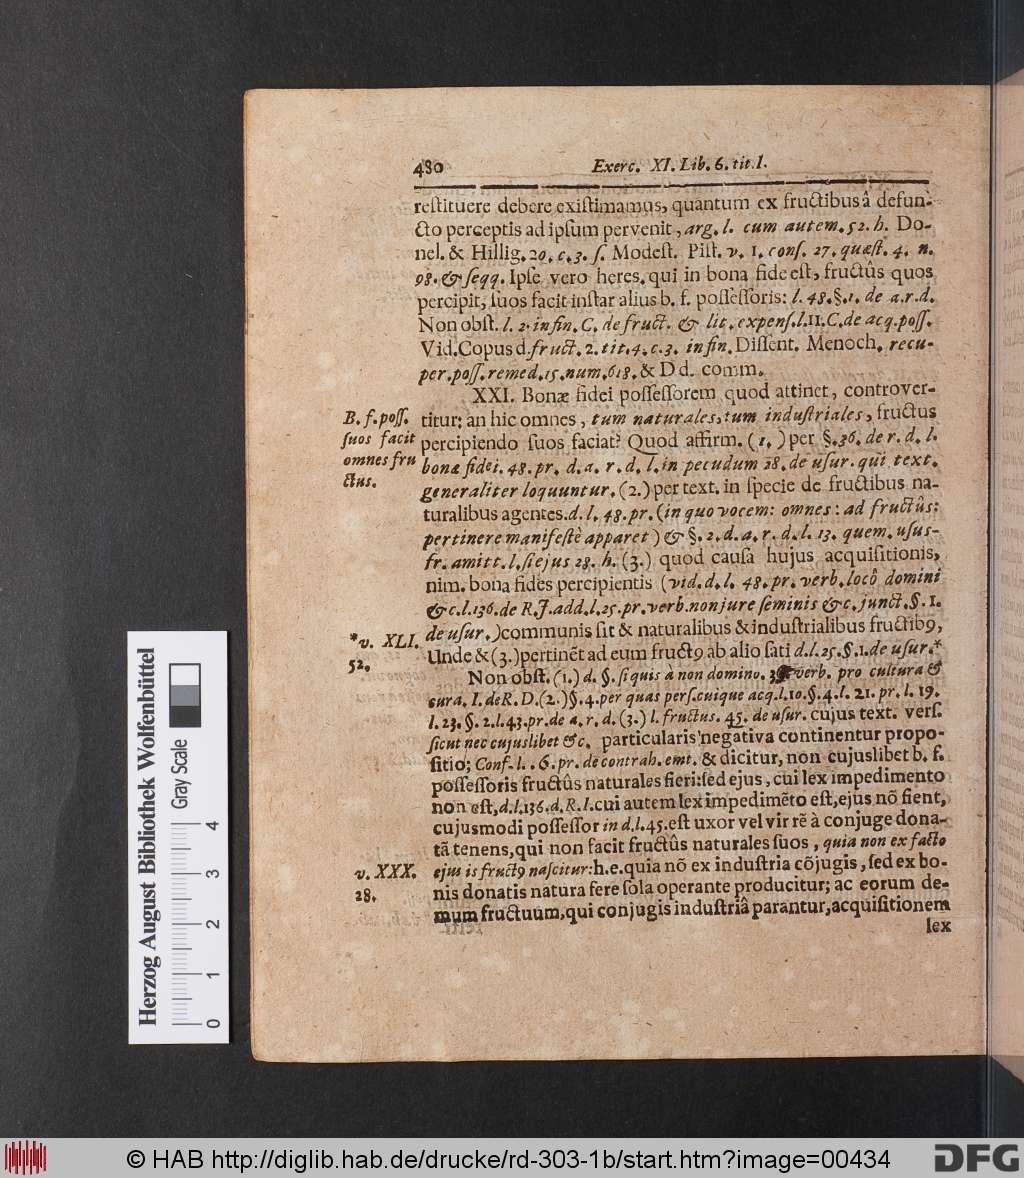 480 Exerc. XI. Lib. 6. tit. 1.
restituere debere existimamus, quantum ex fructibus â defun-
cto perceptis ad ipsum pervenit, arg. l. cum autem. 52. h. Do-
nel. & Hillig. 20. c. 3. s. Modest. Pist. v. 1. cons. 27. quæst. 4. n.
98. & seqq. Ipse vero heres, qui in bona fide est, fructûs quos
percipit, suos facit instar alius b. f. possessoris: l. 48. §. 1. de a. r. d.
Non obst. l. 2. in fin. C. de fruct. & lit. expens. l. 11. C. de acq. poss.
Vid. Copus d. fruct. 2. tit. 4. c. 3. in fin. Dissent. Menoch. recu-
per. poss. remed. 15. num. 618. & Dd. comm.
XXI. Bonæ fidei possessorem quod attinet, controver-
B. f. poss.
suos facit
omnes fru
ctus.
titur: an hic omnes, tum naturales, tum industriales, fructus
percipiendo suos faciat? Quod affirm. (1.) per §. 36. de r. d. l.
bonæ fidei. 48. pr. d. a. r. d. l. in pecudum 28. de usur. qui text.
generaliter loquuntur. (2.) per text. in specie de fructibus na-
turalibus agentes. d. l. 48. pr. (in quo vocem: omnes: ad fructûs:
pertinere manifestè apparet) & §. 2. d. a. r. d. l. 13. quem. usus-
fr. amitt. l. si ejus 28. h. (3.) quod causa hujus acquisitionis,
nim. bona fides percipientis (vid. d. l. 48. pr. verb. locô domini
&c. l. 136. de R. J. add. l. 25. pr. verb. non jure seminis &c. junct. §. 1.
de usur.) communis sit & naturalibus & industrialibus fructibꝰ,
*v. XLI.
52.
Unde & (3.) pertinēt ad eum fructꝰ ab alio sati d. l. 25. §. 1. de usur.*
Non obst. (1.) d. §. si quis à non domino. verb. pro cultura &
cura, I. de R. D. (2.) §. 4. per quas pers. cuique acq. l. 10. §. 4. l. 21. pr. l. 19.
l. 23. §. 2. l. 43. pr. de a. r. d. (3.) l. fructus. 45. de usur. cujus text. vers.
sicut nec cujuslibet &c. particularis negativa continentur propo-
sitio; Conf. l. . 6. pr. de contrah. emt. & dicitur, non cujuslibet b. f.
possessoris fructûs naturales fieri: sed ejus, cui lex impedimento
non est, d. l. 136. d. R. I. cui autem lex impedimēto est, ejus nō fient,
cujusmodi possessor in d. l. 45. est uxor vel vir rē à conjuge dona-
tā tenens, qui non facit fructûs naturales suos, quia non ex facto
v. XXX.
28.
ejus is fructꝰ nascitur: h. e. quia nō ex industria cōjugis, sed ex bo-
nis donatis natura fere sola operante producitur; ac eorum de-
mum fructuum, qui conjugis industriâ parantur, acquisitionem
lex
Herzog August Bibliothek Wolfenbüttel
Gray Scale
0 1 2 3 4
© HAB http://diglib.hab.de/drucke/rd-303-1b/start.htm?image=00434
DFG